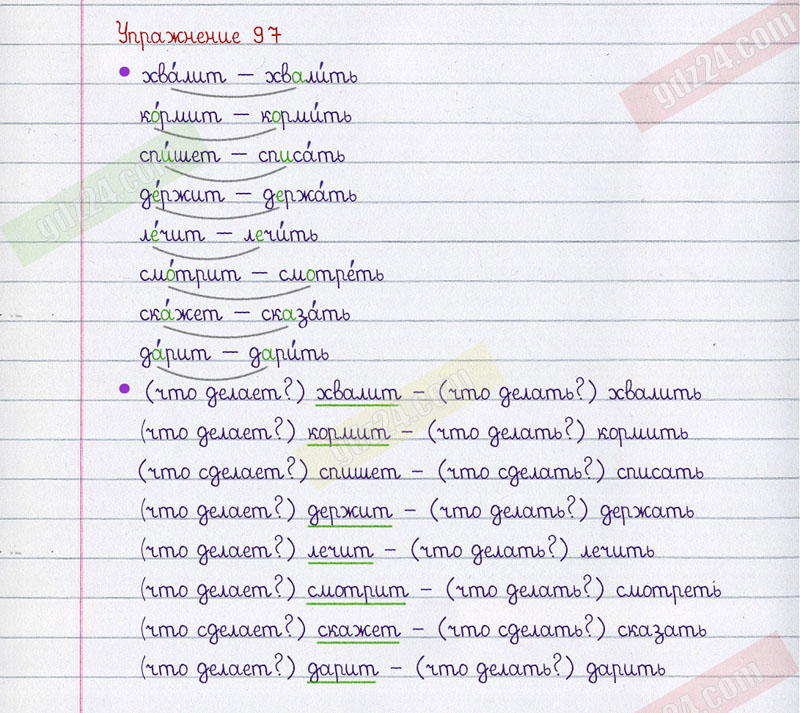 Упражнение 97
• хва́лит – хвали́ть
ко́рмит – корми́ть
спи́шет – списа́ть
де́ржит – держа́ть
ле́чит – лечи́ть
смо́трит – смотре́ть
ска́жет – сказа́ть
да́рит – дари́ть
• (что делает?) хвалит – (что делать?) хвалить
(что делает?) кормит – (что делать?) кормить
(что сделает?) спишет – (что сделать?) списать
(что делает?) держит – (что делать?) держать
(что делает?) лечит – (что делать?) лечить
(что делает?) смотрит – (что делать?) смотреть
(что сделает?) скажет – (что сделать?) сказать
(что делает?) дарит – (что делать?) дарить
gdz24.com
gdz24.com
gdz24.com
gdz24.com